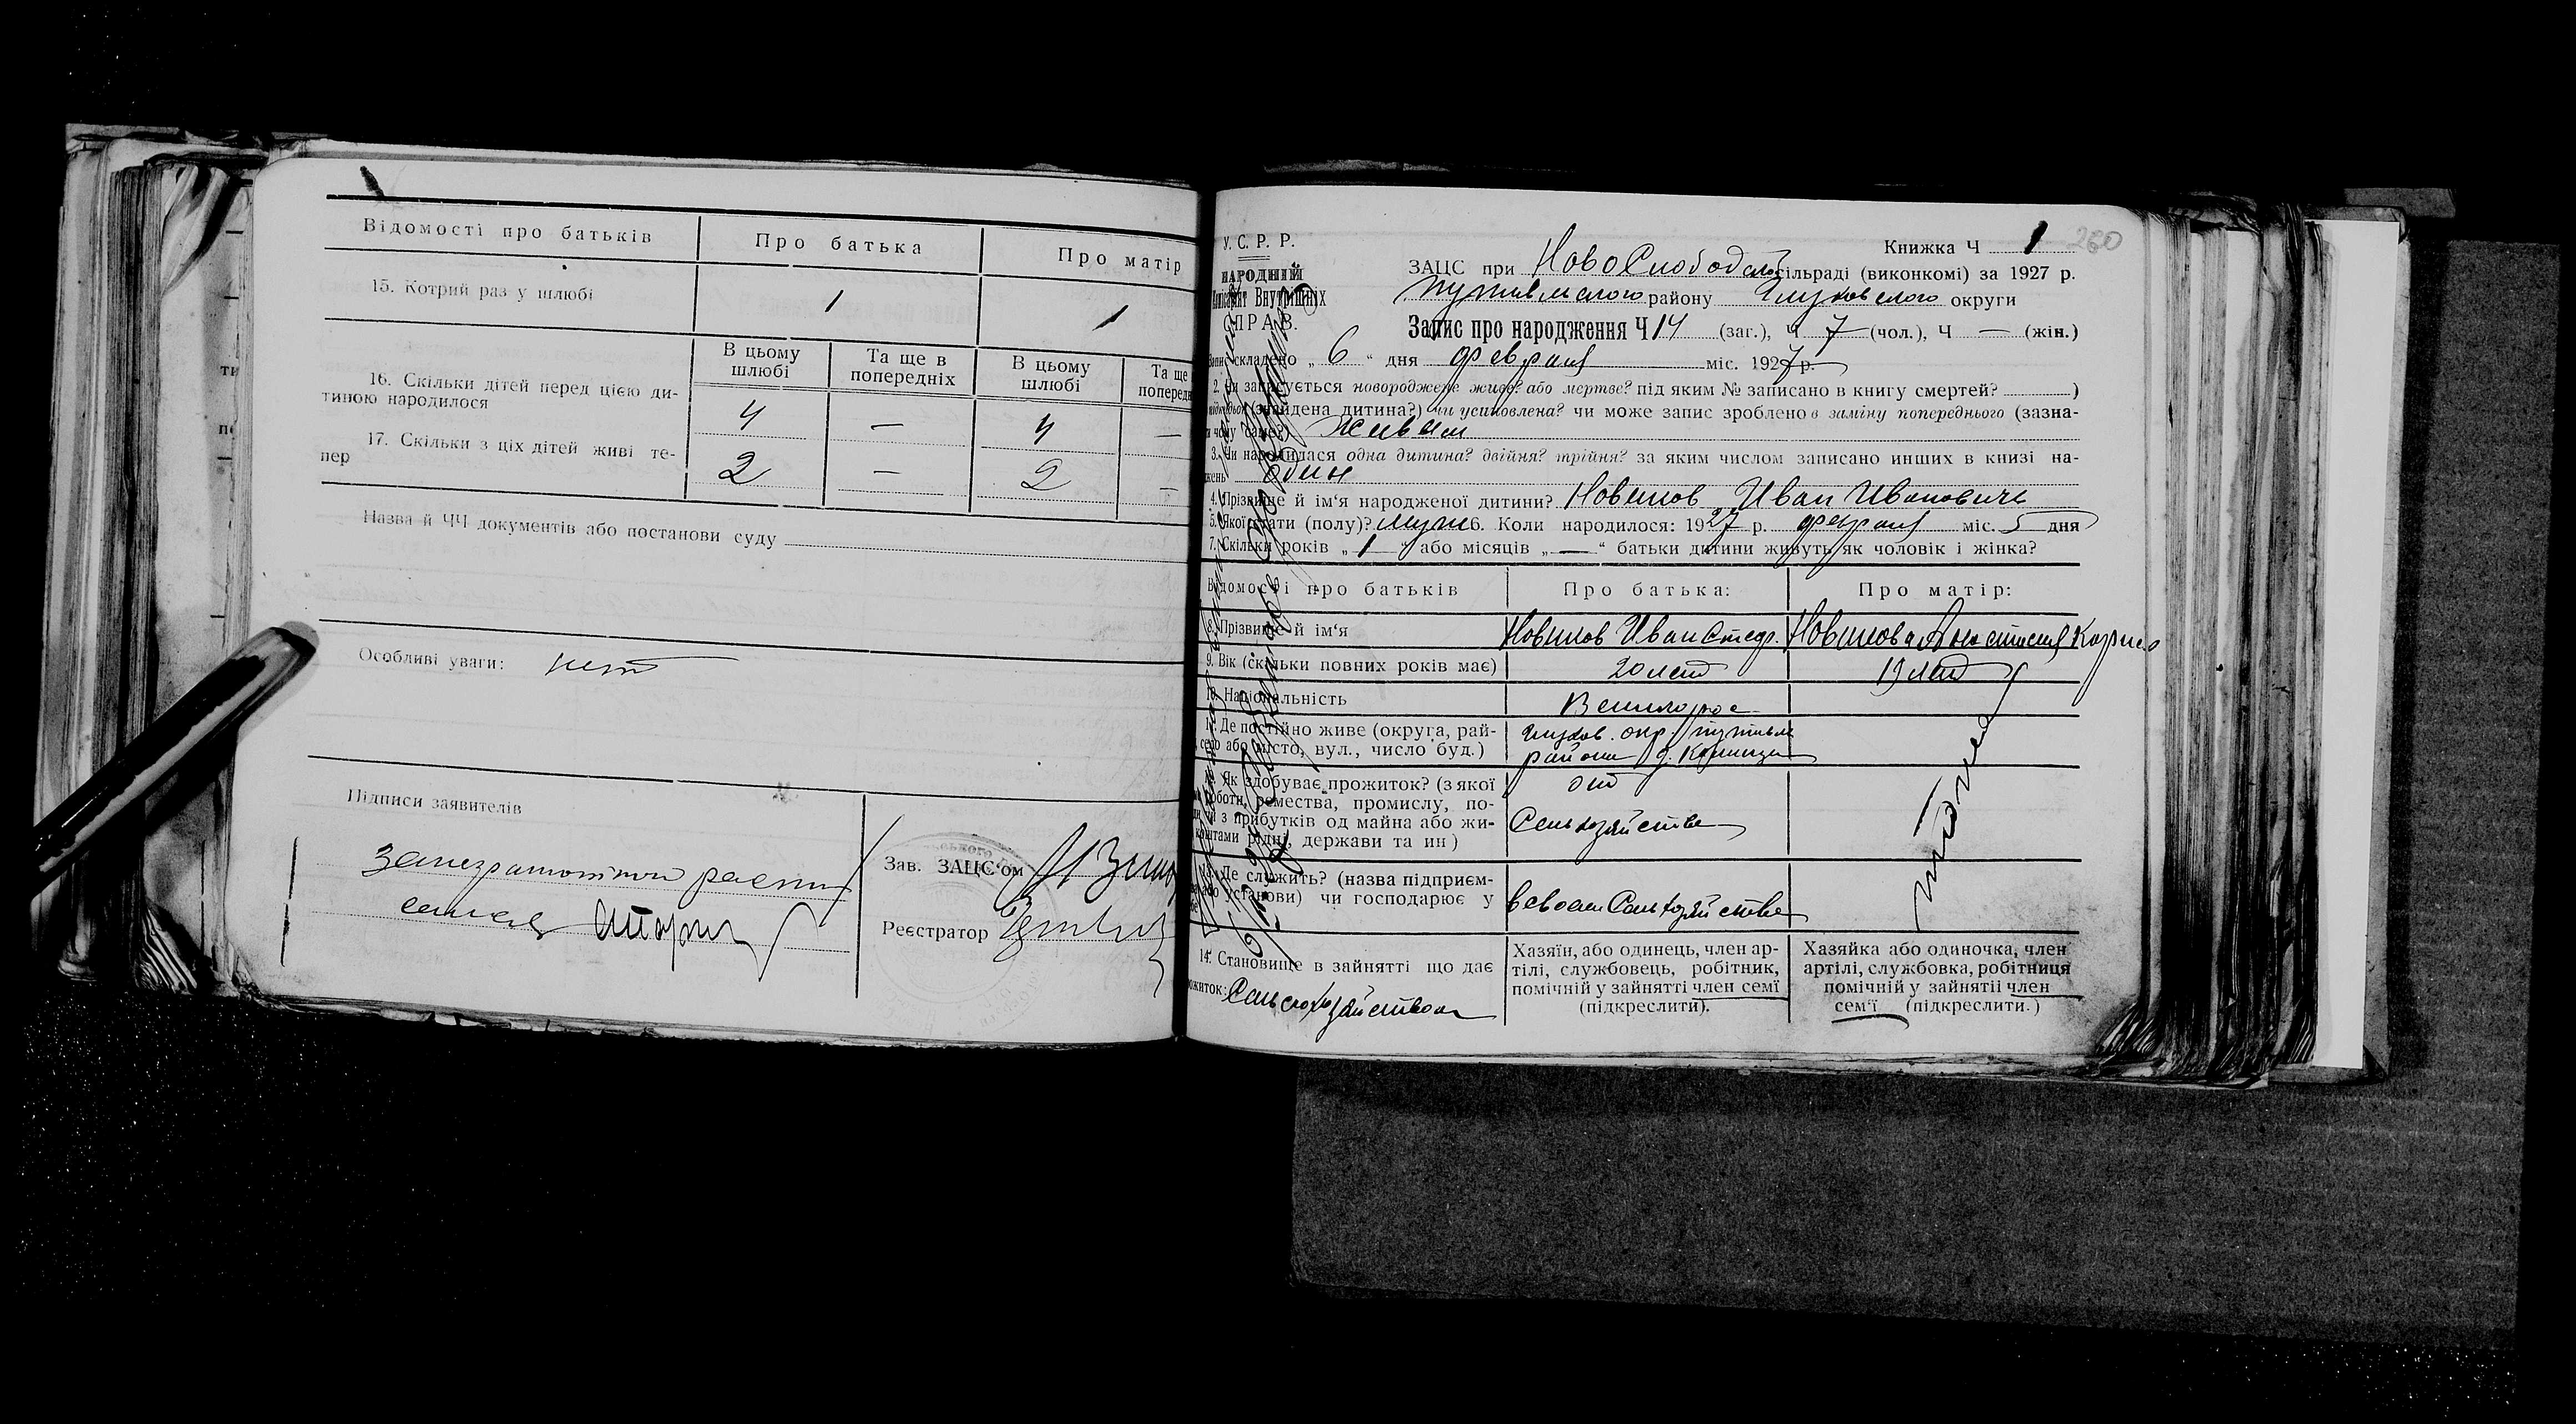 Відомості про батьків
Про батька
Про матір
15. Котрий раз у шлюбі
1
1
В цьому шлюбі
Та ще в попередніх
В цьому шлюбі
Та ще
попередн
16. Скільки дітей перед цією ди-
тиною народилося
4
—
4
—
17. Скільки з ціх дітей живі те-
пер
2
—
2
—
Назва й ЧЧ документів або постанови суду
Особливі уваги: нет
Підписи заявителів
Зав. ЗАЦС'ом
за неграмотного
Реєстратор
У. С. Р. Р.
НАРОДНІЙ
Внутрішніх
СПРАВ.
Книжка Ч 1
260
ЗАЦС при Новослободской сільраді (виконкомі) за 1927 р.
Путивльского району Глуховского округи
Запис про народження Ч 14 (заг.), Ч 7 (чол.), Ч — (жін.)
складено „ 6 “ дня февраля міс. 1927 р.
2. Чи записується новороджене живе? або мертве? під яким № записано в книгу смертей? )
(знайдена дитина?) чи усиновлена? чи може запис зроблено в заміну попереднього (зазна-
чому саме?) живым
3. Чи народилася одна дитина? двійня? трійня? за яким числом записано инших в книзі на-
жень один
4. Прізвище й ім‘я народженої дитини? Новиков Иван Иванович
5. Якої стати (полу)? муж 6. Коли народилося: 1927 р. февраля міс. 5 дня
7. Скільки років „ 1 “ або місяців „ — “ батьки дитини живуть як чоловік і жінка?
Відомості про батьків
Про батька:
Про матір:
8. Прізвище й ім‘я
Новиков Иван Стеф.
Новикова Анастасия
9. Вік (скільки повних років має)
20 лет
19 лет
10. Національність
Великорос
11. Де постійно живе (округа, рай-
село або місто, вул., число буд.)
Глухов. окр. Путивл
района д.
12. Як здобуває прожиток? (з якої
роботи, ремества, промислу, по-
чи з прибутків од майна або жи-
коштами рідні, держави та ин)
от
Сельхозяйства
13. Де служить? (назва підприєм-
або установи) чи господарює у
в своем Сельхозяйстве
14. Становище в зайнятті що дає
прожиток: Сельскохозяйством
Хазяїн, або одинець, член ар-
тілі, службовець, робітник,
помічній у зайнятті член семї
(підкреслити).
Хазяйка або одиночка, член
артілі, службовка, робітниця
помічній у зайнятії член
сем‘ї (підкреслити.)